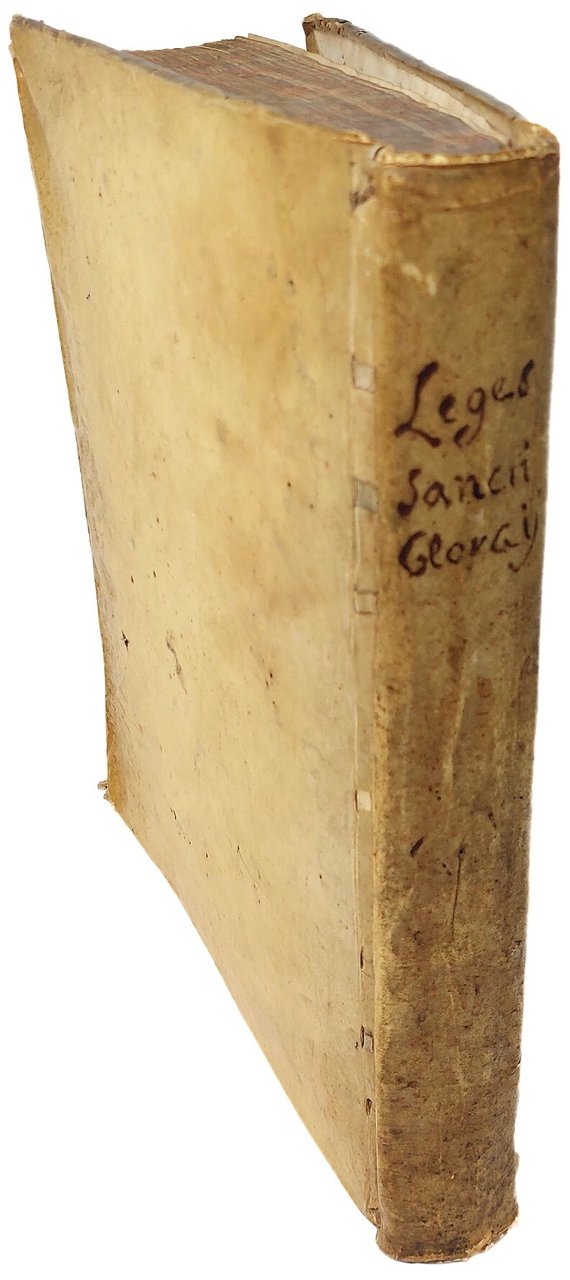 Leges
Sancti
Georgij